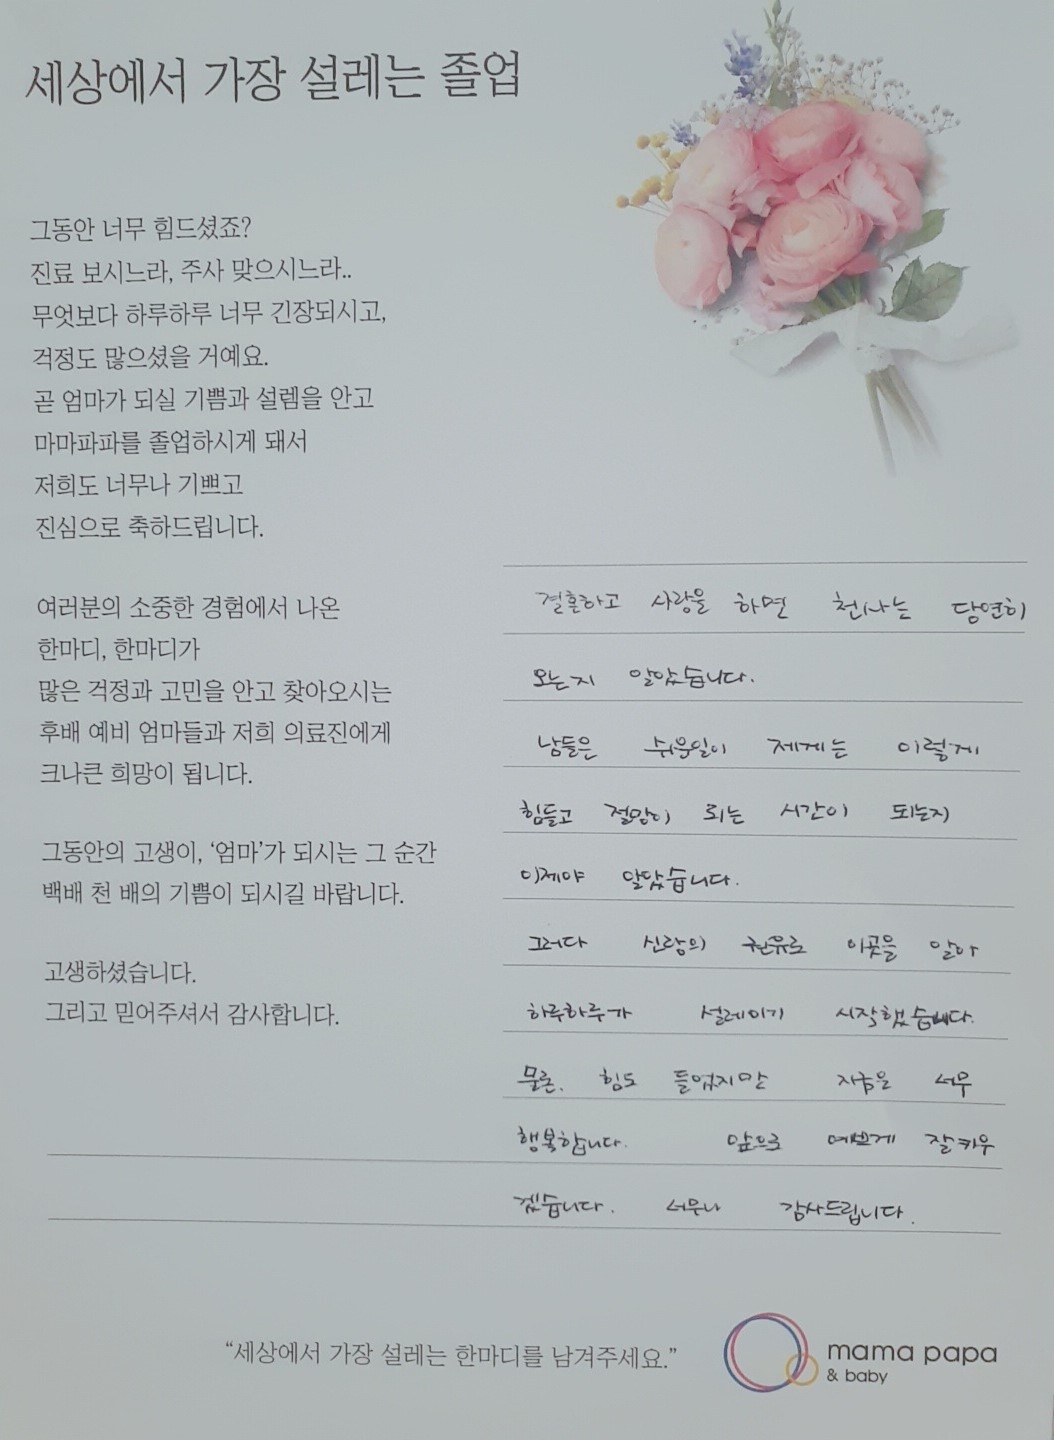 세상에서 가장 설레는 졸업
그동안 너무 힘드셨죠?
진료 보시느라, 주사 맞으시느라..
무엇보다 하루하루 너무 긴장되시고,
걱정도 많으셨을 거예요.
곧 엄마가 되실 기쁨과 설렘을 안고
마마파파를 졸업하시게 돼서
저희도 너무나 기쁘고
진심으로 축하드립니다.
여러분의 소중한 경험에서 나온
한마디, 한마디가
많은 걱정과 고민을 안고 찾아오시는
후배 예비 엄마들과 저희 의료진에게
크나큰 희망이 됩니다.
그동안의 고생이, ‘엄마’가 되시는 그 순간
백배 천 배의 기쁨이 되시길 바랍니다.
고생하셨습니다.
그리고 믿어주셔서 감사합니다.
결혼하고 사랑을 하면 천사는 당연히
오는지 알았습니다.
남들은 쉬운일이 제게는 이렇게
힘들고 절망이 되는 시간이 되는지
이제야 알았습니다.
그러다 신랑의 권유로 이곳을 알아
하루하루가 설레이기 시작했습니다.
물론, 힘도 들었지만 지금은 너무
행복합니다. 앞으로 예쁘게 잘키우
겠습니다. 너무나 감사드립니다.
“세상에서 가장 설레는 한마디를 남겨주세요.”
mama papa
& baby